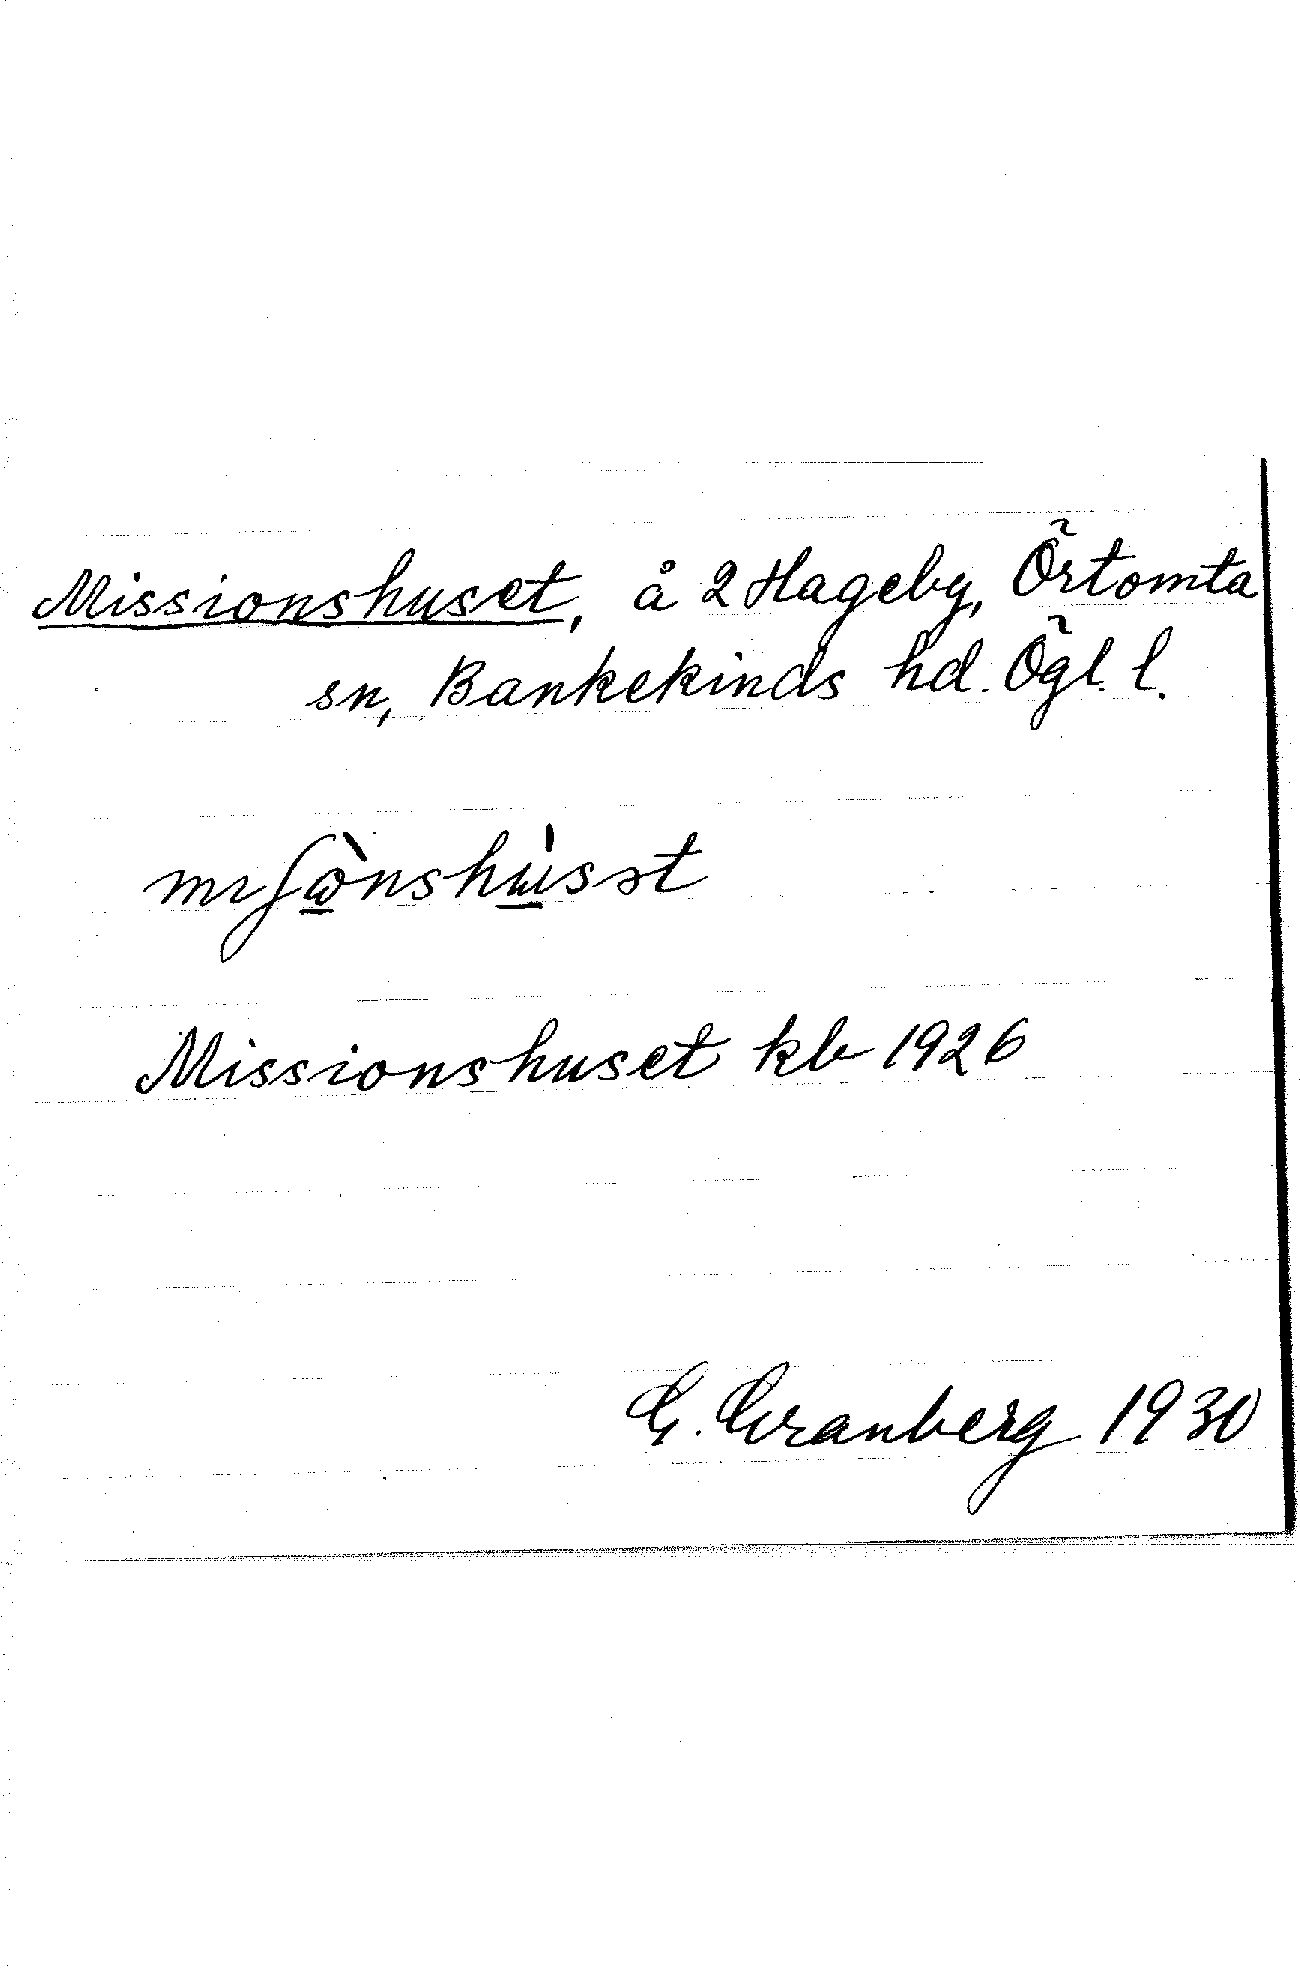 Missionshuset, å 2 Hageby, Örtomta
sn, Bankekinds hd. Ögl. l.
Missionshuset kb 1926
G. Granberg 1930